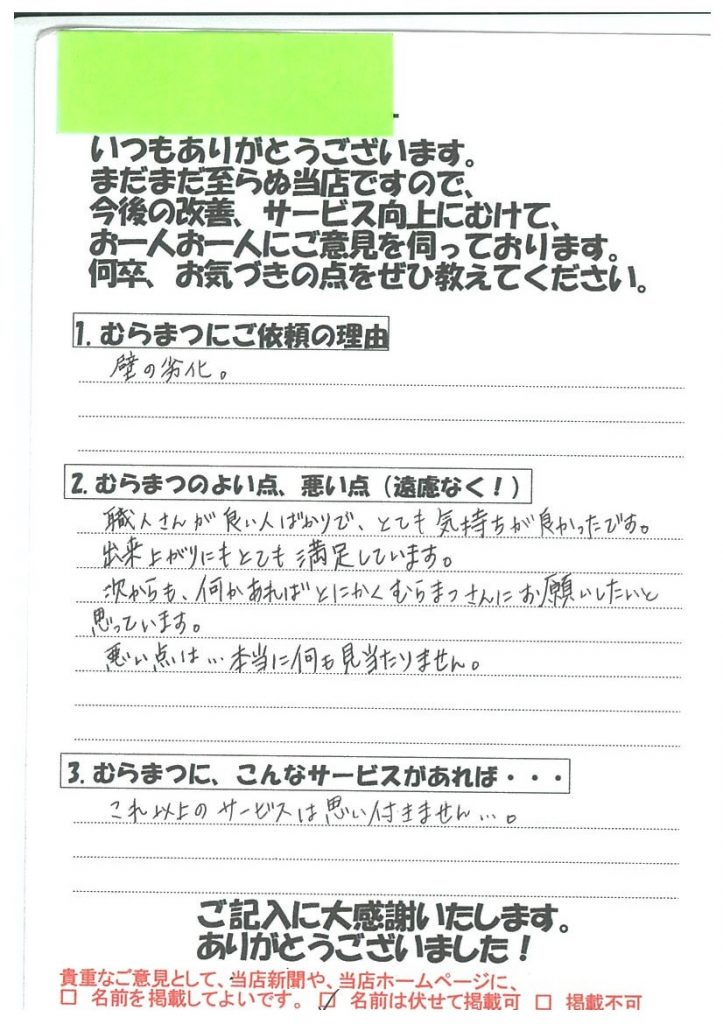 いつもありがとうございます。
まだまだ至らぬ当店ですので、
今後の改善、サービス向上にむけて、
お一人お一人にご意見を伺っております。
何卒、お気づきの点をぜひ教えてください。
1. むらまつにご依頼の理由
壁の劣化。
2. むらまつのよい点、悪い点（遠慮なく！）
職人さんが良い人ばかりで、とても気持ちが良かったです。
出来上がりにもとても満足しています。
次からも、何かあればとにかくむらまつさんにお願いしたいと
思っています。
悪い点は…本当に何も見当たりません。
3. むらまつに、こんなサービスがあれば・・・
これ以上のサービスは思い付きません…。
ご記入に大感謝いたします。
ありがとうございました！
貴重なご意見として、当店新聞や、当店ホームページに、
□ 名前を掲載してよいです。 ☑ 名前は伏せて掲載可 □ 掲載不可